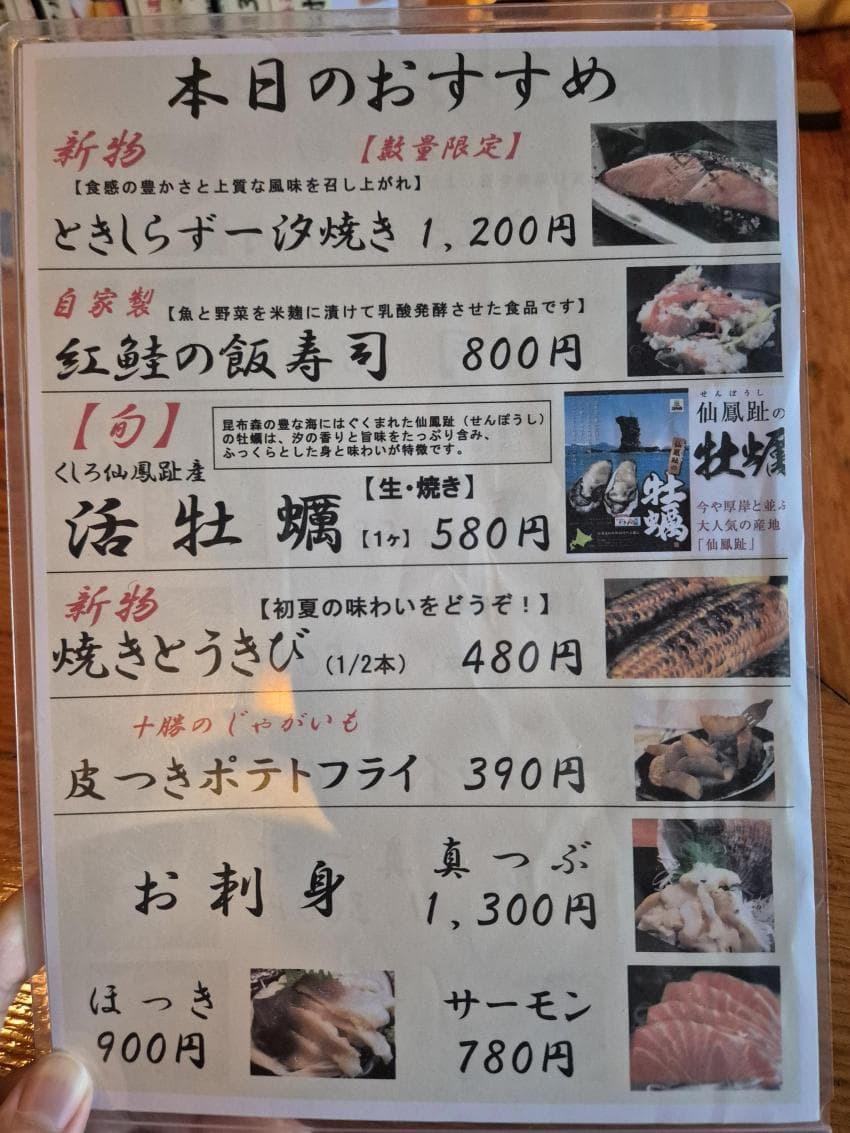 本日のおすすめ
新物 【数量限定】
【食感の豊かさと上質な風味を召し上がれ】
ときしらず一汐焼き 1,200円
自家製 【魚と野菜を米麹に漬けて乳酸発酵させた食品です】
紅鮭の飯寿司 800円
【旬】
昆布森の豊な海にはぐくまれた仙鳳趾（せんぽうし）
の牡蠣は、汐の香りと旨味をたっぷり含み、
ふっくらとした身と味わいが特徴です。
くしろ仙鳳趾産
活牡蠣 【生・焼き】
【1ヶ】 580円
仙鳳趾の
牡蠣
せんぽうし
仙鳳趾の
牡蠣
今や厚岸と並ぶ
大人気の産地
「仙鳳趾」
新物 【初夏の味わいをどうぞ！】
焼きとうきび (1/2本) 480円
十勝のじゃがいも
皮つきポテトフライ 390円
お刺身
真つぶ
1,300円
ほっき
900円
サーモン
780円